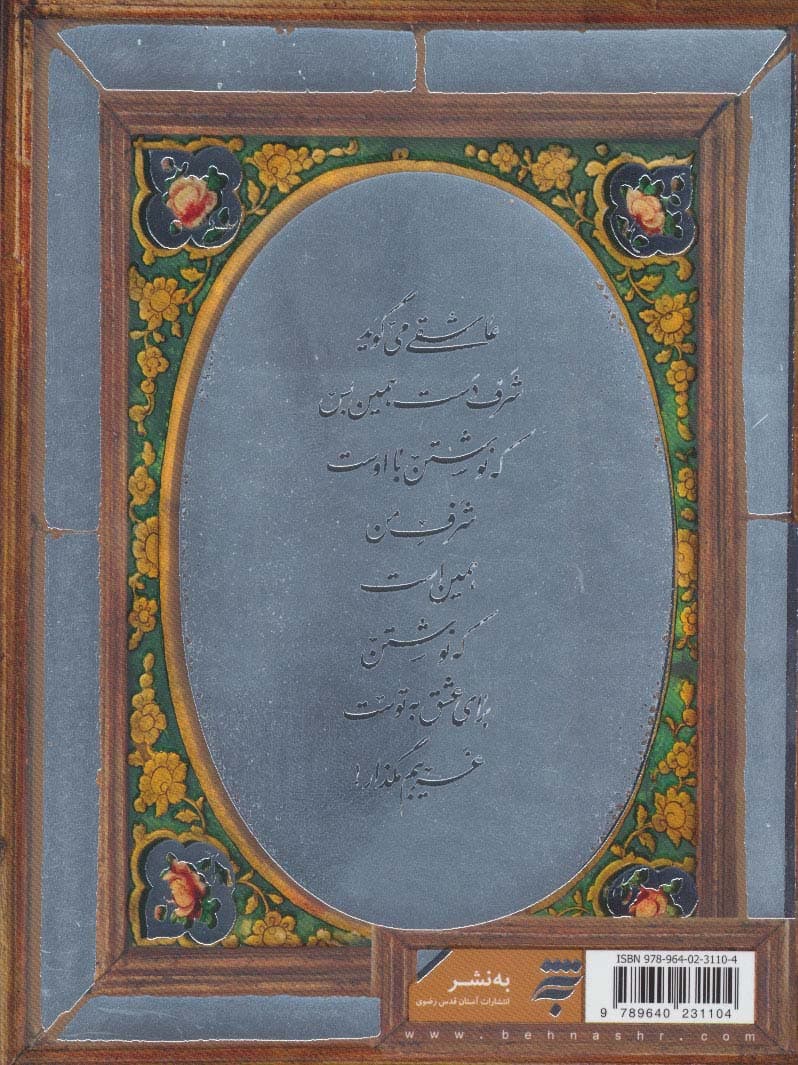 عاشقی می گوید
شرف دست همین بس
که نوشتن با اوست
شرفِ من
همین است
که نوشتن
برای عشق به توست
غریبم مگذار!
به‌نشر
انتشارات آستان قدس رضوی
ISBN 978-964-02-3110-4
9 789640 231104
www.behnashr.com